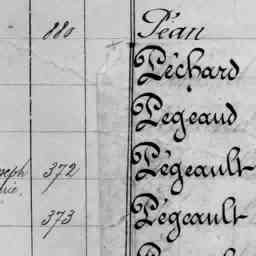 880 Péan
Péchard
Pegeaud
seph 372 Pégeault
rie, 373 Pégeault